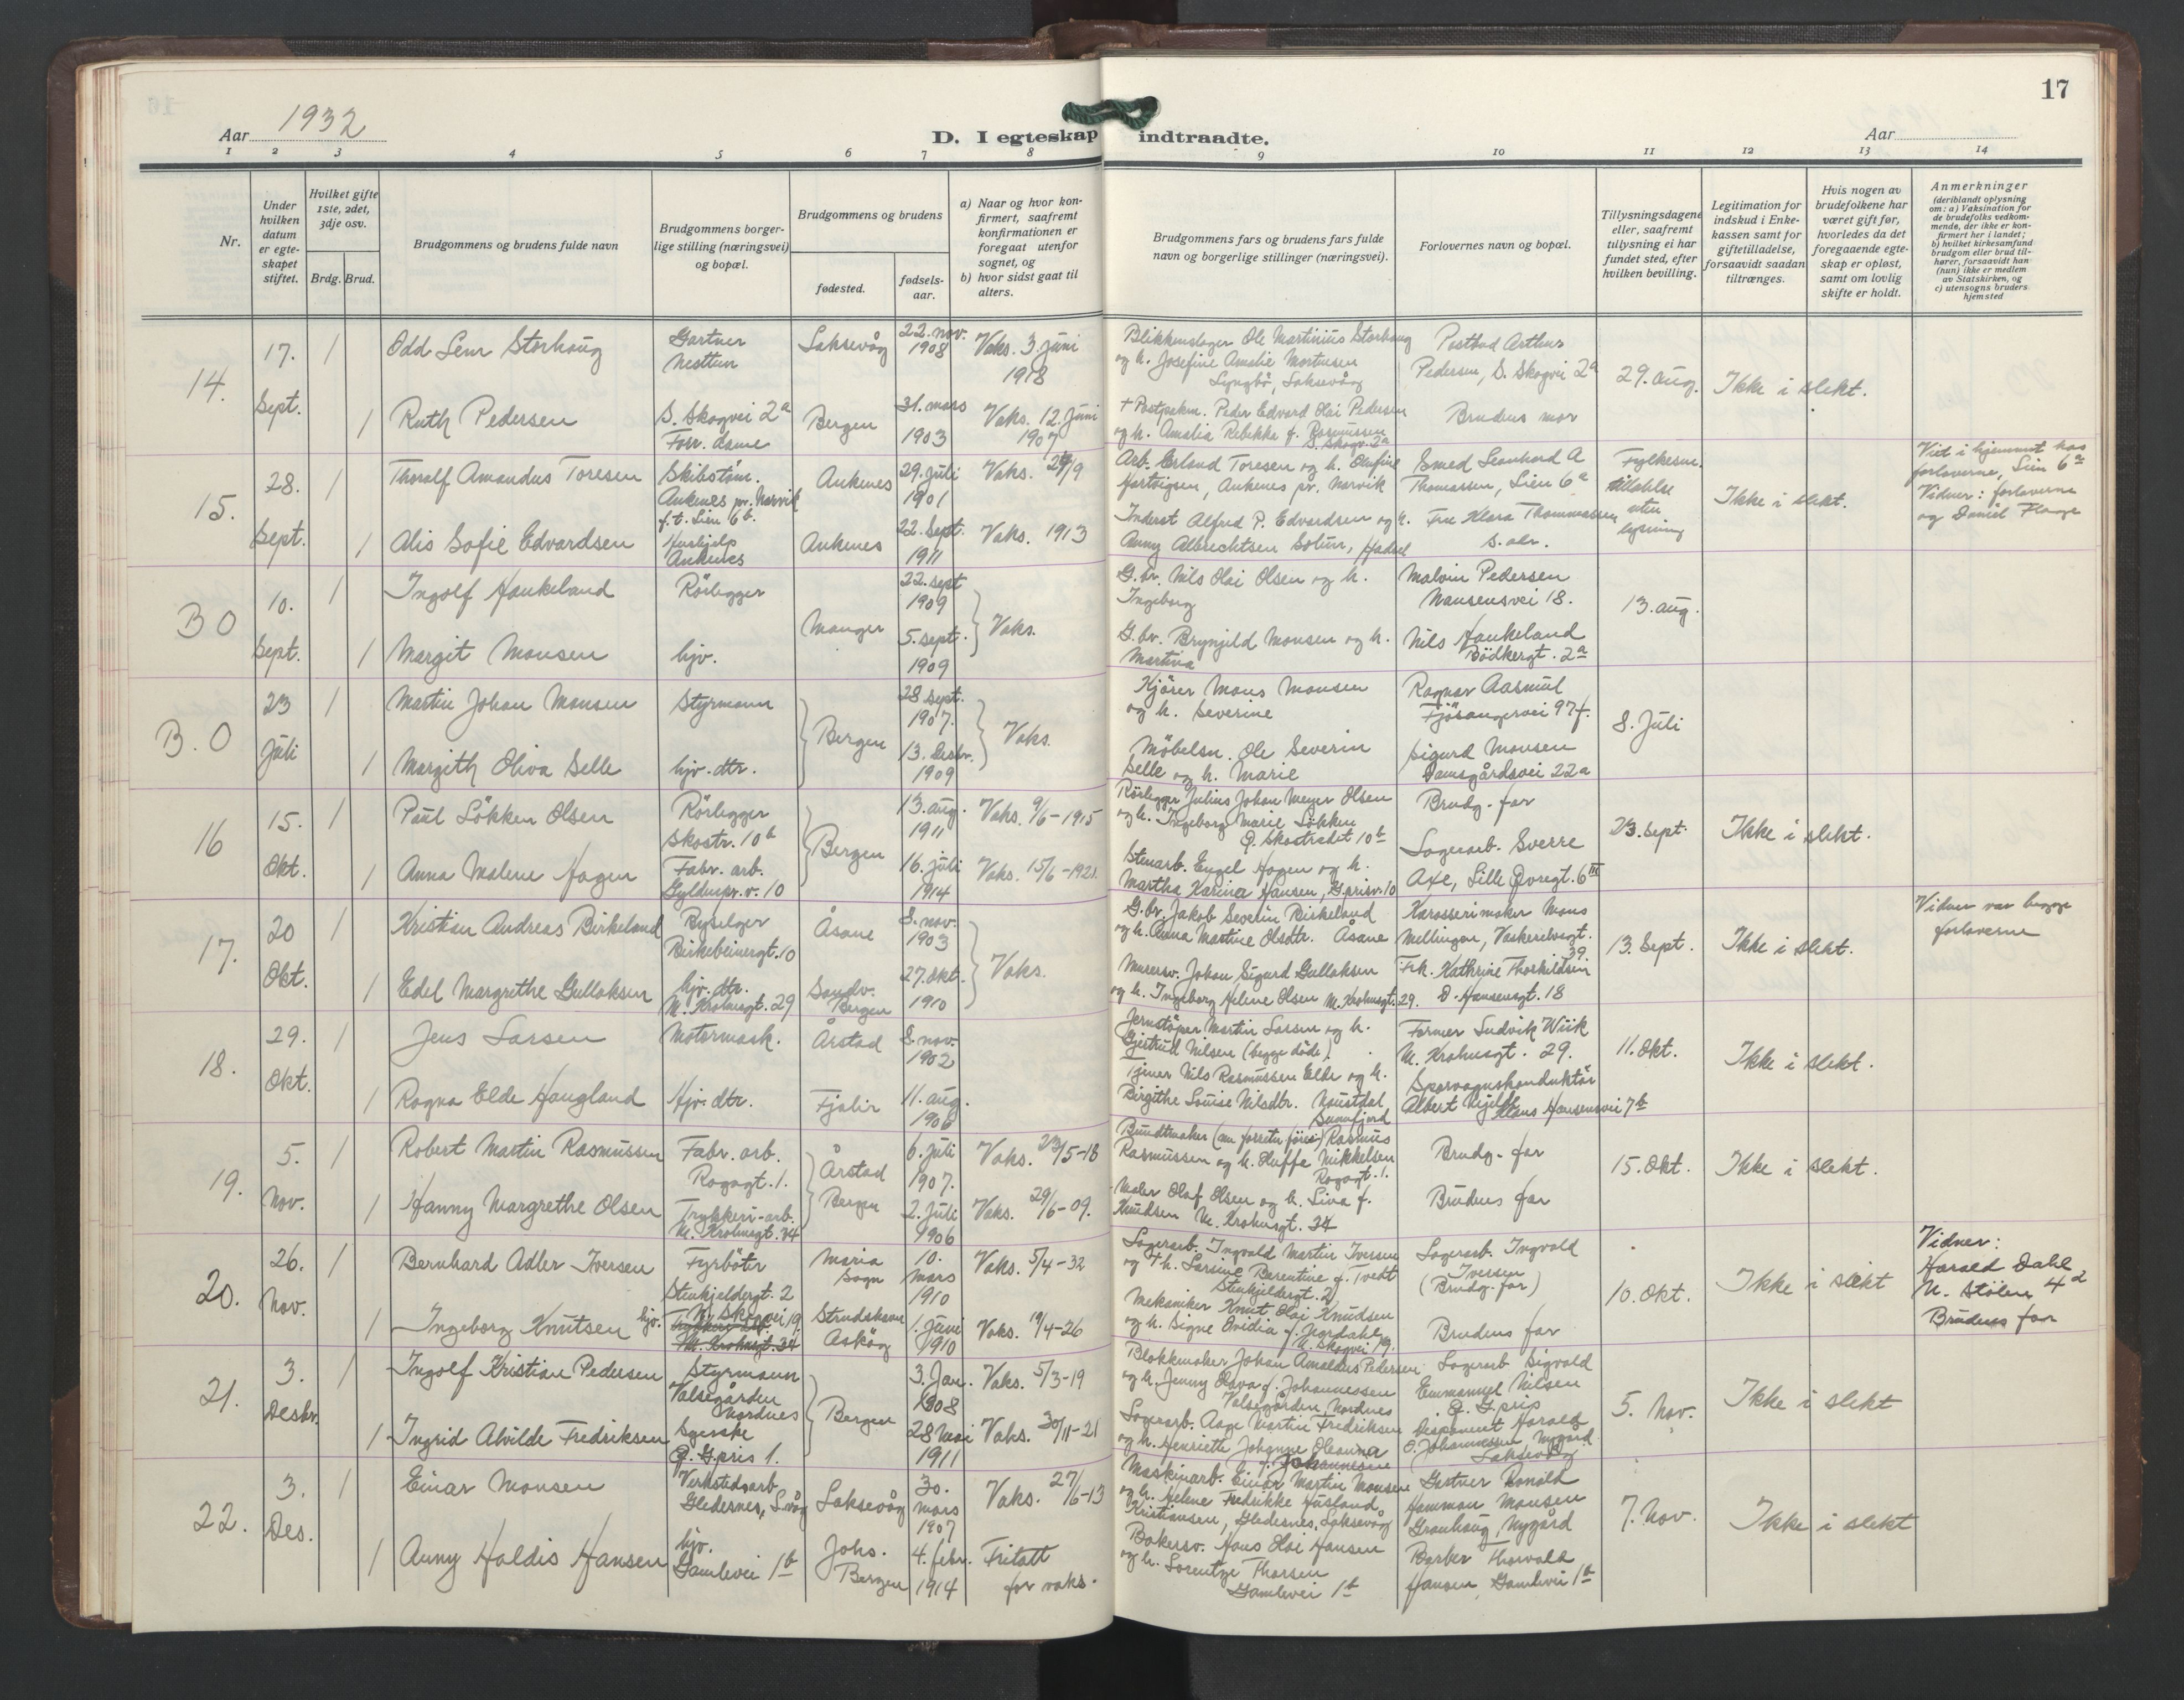 17
Aar 1932
D. I egteskap indtraadte.
Aar
1 2 3 4 5 6 7 8 9 10 11 12 13 14
Nr.
Under hvilken datum er egteskapet stiftet.
Hvilket gifte 1ste, 2det, 3dje osv.
Brdg. Brud.
Brudgommens og brudens fulde navn
Brudgommens borgerlige stilling (næringsvei) og bopæl.
Brudgommens og brudens
fødested.
fødselsaar.
a) Naar og hvor konfirmert, saafremt konfirmationen er foregaat utenfor sognet, og
b) hvor sidst gaat til alters.
Brudgommens fars og brudens fars fulde navn og borgerlige stillinger (næringsvei).
Forlovernes navn og bopæl.
Tillysningsdagene eller, saafremt tillysning ei har fundet sted, efter hvilken bevilling.
Legitimation for indskud i Enkekassen samt for giftetilladelse, forsaavidt saadan tiltrænges.
Hvis nogen av brudefolkene har været gift før, hvorledes da det foregaaende egteskap er opløst, samt om lovlig skifte er holdt.
Anmerkninger (deriblandt oplysning om: a) Vaksination for de brudefolks vedkommende, der ikke er konfirmert her i landet; b) hvilket kirkesamfund brudgom eller brud tilhører, forsaavidt han (hun) ikke er medlem av Statskirken, og c) utensogns bruders hjemsted
14. 17. Sept. 1
Odd Storhaug
Gartner
Nesttun
Laksevåg
22. nov. 1908
Vaks. 3. juni 1918
Blikkenslager Ole Martinius Storhaug
og h. Josefine Amalie Mortensen
Lyngbö, Laksevåg
Postbud Arthur
Pedersen, S. Skogvei 2a
29. aug.
Ikke i slekt.
1 Ruth Pedersen
S. Skogvei 2a
Forr. dame
Bergen
31. mars 1903
Vaks. 12. juni 1907
† Postpakm. Peder Edvard Olai Pedersen
og h. Amalia Rebekke f. Rasmussen
S. Skogv. 2a
Brudens mor
15. 28. Sept. 1
Thoralf Amandus Toresen
Skibstöm.
Ankenes pr. Narvik
f. t. Lien 6b.
Ankenes
29. juli 1901
Arb. Erland Toresen og h. Olufine
Hartvigsen, Ankenes pr. Narvik
Smed Leonhard A
Thomassen, Lien 6a
Fylkesm.
tillatelse
uten
lysning
Ikke i slekt.
Viet i hjemmet hos
forloverne, Lien 6a
Vidner: forloverne
og Daniel
1 Alis Sofie Edvardsen
Hushjelp
Ankenes
Ankenes
22. Sept. 1911
Vaks. 1913
Inderst Alfred P. Edvardsen og h.
Anny Albrechtsen Solum, Hadsel
Fru Klara Thommassen
BO 10. Sept. 1
Ingolf Haukeland
Rörlegger
Manger
22. sept 1909
Vaks.
G.br. Nils Olai Olsen og h.
Ingeborg
Malvin Pedersen
Nansensvei 18.
13. aug.
1 Margit Monsen
hjv.
5. sept. 1909
G.br. Brynjeld Monsen og h.
Martina
Nils Haukeland
Bödkergt. 2a
B.O 23 Juli 1
Martin Johan Monsen
Styrmann
Bergen
28 sept. 1907.
Vaks.
Kjörer Mons Monsen
og h. Severine
Ragnar Aasmul
Fjösangervei 97f.
8. Juli
1 Margith Oliva Selle
hjv. dtr.
13. Desbr. 1909
Möbelsn. Ole Severin
Selle og h. Marie
Sigurd Monsen
Damsgårdsvei 22a
16 15. Okt. 1
Paul Lökken Olsen
Rörlegger
Skostr. 10b
Bergen
13. aug. 1911
Vaks. 9/6-1915
Rörlegger Julius Johan Meyer Olsen
og h. Ingeborg Marie Lökken
Ö. Skostredet 10b
Brudg. far
23. sept.
Ikke i slekt.
1 Anna Malene Hagen
Fabr. arb.
Gyldenpr. v. 10
16. juli 1914
Vaks. 15/6-1921.
Stenarb. Engel Hagen og h.
Martha Karina Hansen, G.prisv. 10
Lagerarb. Sverre
Axe, Lille Övregt. 6 III
17. 20 Okt. 1
Kristian Andreas Birkeland
Byselger
Birkebeinergt. 10
Åsane
8. nov. 1903
Vaks.
G.br. Jakob Severin Birkeland
og h. Anna Martine Olsdtr. Åsane
Karosserimaker Mons
Mellingen, Vaskerelvsgt. 39.
13. Sept.
Ikke i slekt.
Vidner var begge
forloverne
1 Edel Margrethe Gullaksen
hjv. dtr.
N. Krohnsgt. 29
Sandv. Bergen
27. okt. 1910
Murersv. Johan Sigurd Gullaksen
og h. Ingeborg Helene Olsen N. Krohnsgt. 29.
Frk. Kathrine Thorkildsen
D. Hansensgt. 18
18. 29. Okt. 1
Jens Larsen
Motormask.
Årstad
8. nov. 1902
Jernstöper Martin Larsen og h.
Gjertrud Nilsen (begge döde).
Former Ludvik Wiik
N. Krohnsgt. 29.
11. Okt.
Ikke i slekt.
1 Ragna Elde Haugland
Hjv. dtr.
Fjaler
11. aug. 1906
Nils Rasmussen Elde og h.
Birgithe Louise Nilsdtr. Naustdal
Sunnfjord
Sporvognskonduktör
Albert
Klaus Hansensvei 7b
19. 5. Nov. 1
Robert Martin Rasmussen
Fabr. arb.
Rogagt. 1.
Årstad
6. juli 1907.
Vaks. 23/5-18
Bundtmaker Rasmus
Rasmussen og h. Huffe Mikkelsen
Rogagt. 1.
Brudg. far
15. Okt.
Ikke i slekt.
1 Hanny Margrethe Olsen
Trykkeri-arb.
N. Krohnsgt. 34
Bergen
2. juli 1906
Vaks. 29/6-09.
Maler Olaf Olsen og h. Lina f.
Knudsen N. Krohnsgt. 34
Brudens far
20. 26. Nov. 1
Bernhard Adler Iversen
Fyrböter
Steinkjeldergt. 2
Maria Sogn
10. mars 1910
Vaks. 5/4-32
Lagerarb. Ingvald Martin Iversen
og † h. Larsine Berentine f. Tvedt
Steinkjeldergt. 2
Lagerarb. Ingvald
Iversen
(Brudg. far)
10. Okt.
Ikke i slekt
Vidner:
Harald Dahl
N. Stölen 42
Brudens far
1 Ingeborg Knutsen
hjv.
N. Skogvei 19
N. Krohnsgt. 34
Strudshavn
Asköy
1. juni 1910
Vaks. 19/4-26
Mekaniker Knut Olai Knudsen
og h. Signe Ovidia f. Nordahl
N. Skogvei 19.
Brudens far
21. 3. Desbr. 1
Ingolf Kristian Pedersen
Styrmann
Valsegården
Nordnes
Bergen
3. Jan. 1908
Vaks. 5/3-19
Blokkmaker Johan Arnoldus Pedersen
og h. Jenny Olava f. Johannessen
Valsegården, Nordnes
Lagerarb Sigvald
Emmanuel Nilsen
Ö. G.pris
5. Nov.
Ikke i slekt
1 Ingrid Alvilde Fredriksen
Syerske
Ö. G.pris 1.
28 Mai 1911
Vaks. 30/11-21
Lagerarb. Aage Martin Fredriksen
og h. Henriette Johanne Oleanna
f. Johannesen
Disponent Harald
O. Johannessen, Nygård
Laksevåg
22. 3. Des. 1
Einar Monsen
Verkstedsarb.
Gledesnes, L.våg
Laksevåg
30. mars 1907
Vaks. 27/6-13
Maskinarb. Einar Martin Monsen
og h. Helene Fredrikke Husland
Kristiansen, Gledesnes, Laksevåg
Gartner Ronald
Hamman Monsen
Granhaug, Nygård
7. Nov.
Ikke i slekt
1 Anny Haldis Hansen
hjv.
Gamlevei 1b
Johs. Bergen
4. febr. 1914
Fritatt
for vaks.
Bakersv. Hans Olai Hansen
og h. Lorentze Thorsen
Gamlevei 1b
Barber Thorvald
Hansen, Gamlevei 1b